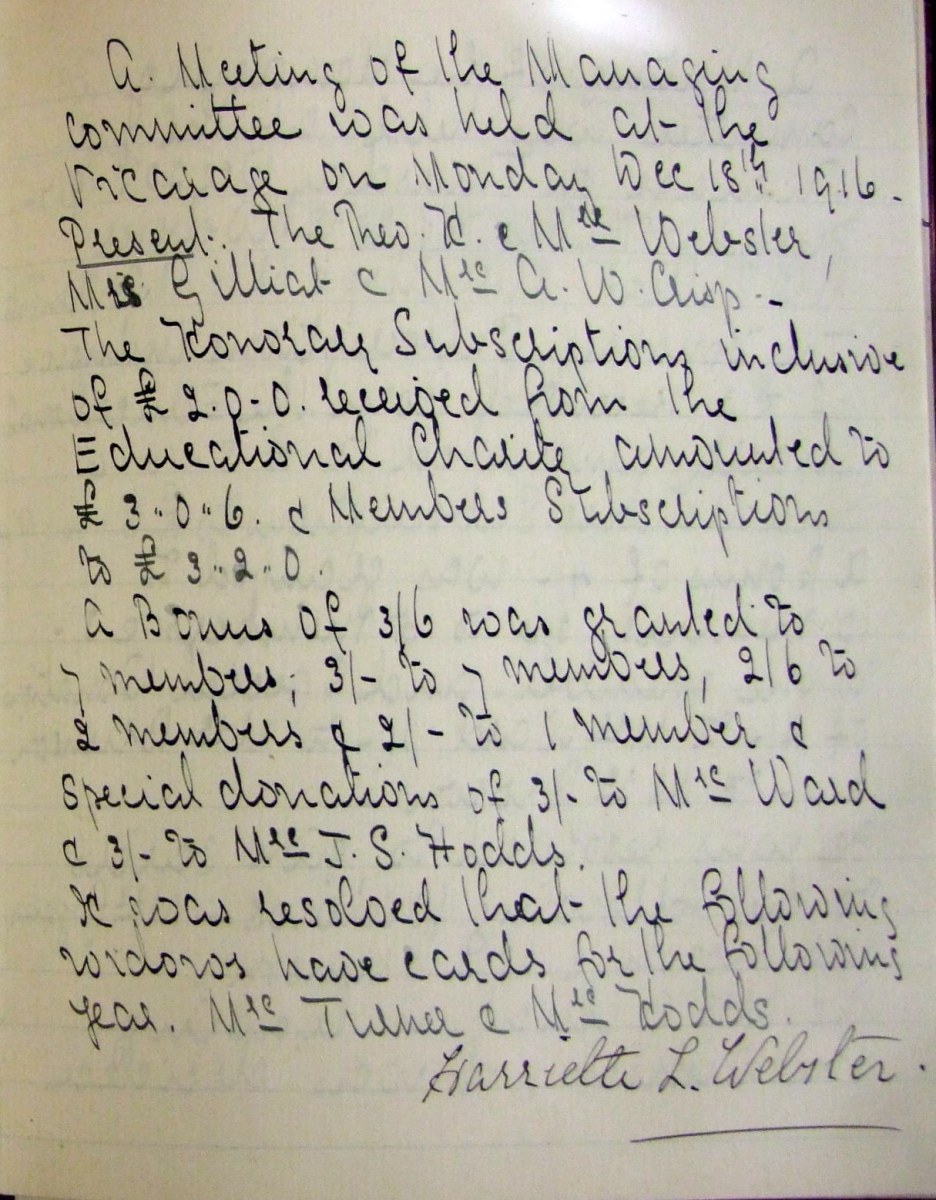 A. Meeting of the Managing
committee was held at the
Vicarage on Monday Dec 18th 1916.
Present. The Theo. H. & Mrs Webster,
Mrs Gilliat & Mrs A. W. Crisp.-
The Honorary Subscriptions inclusive
of £2.0-0. received from the
Educational Charity amounted to
£3"0"6. & Members Subscriptions
to £3"2"0.
A Bonus of 3/6 was granted to
7 members; 3/- to 7 members, 2/6 to
2 members & 2/- to 1 member &
special donations of 3/- to Mrs Ward
& 3/- to Mrs J. S. Hodds.
It was resolved that the following
widows have cards for the following
year. Mrs Turner & Mrs Hodds.
Harriette L. Webster.